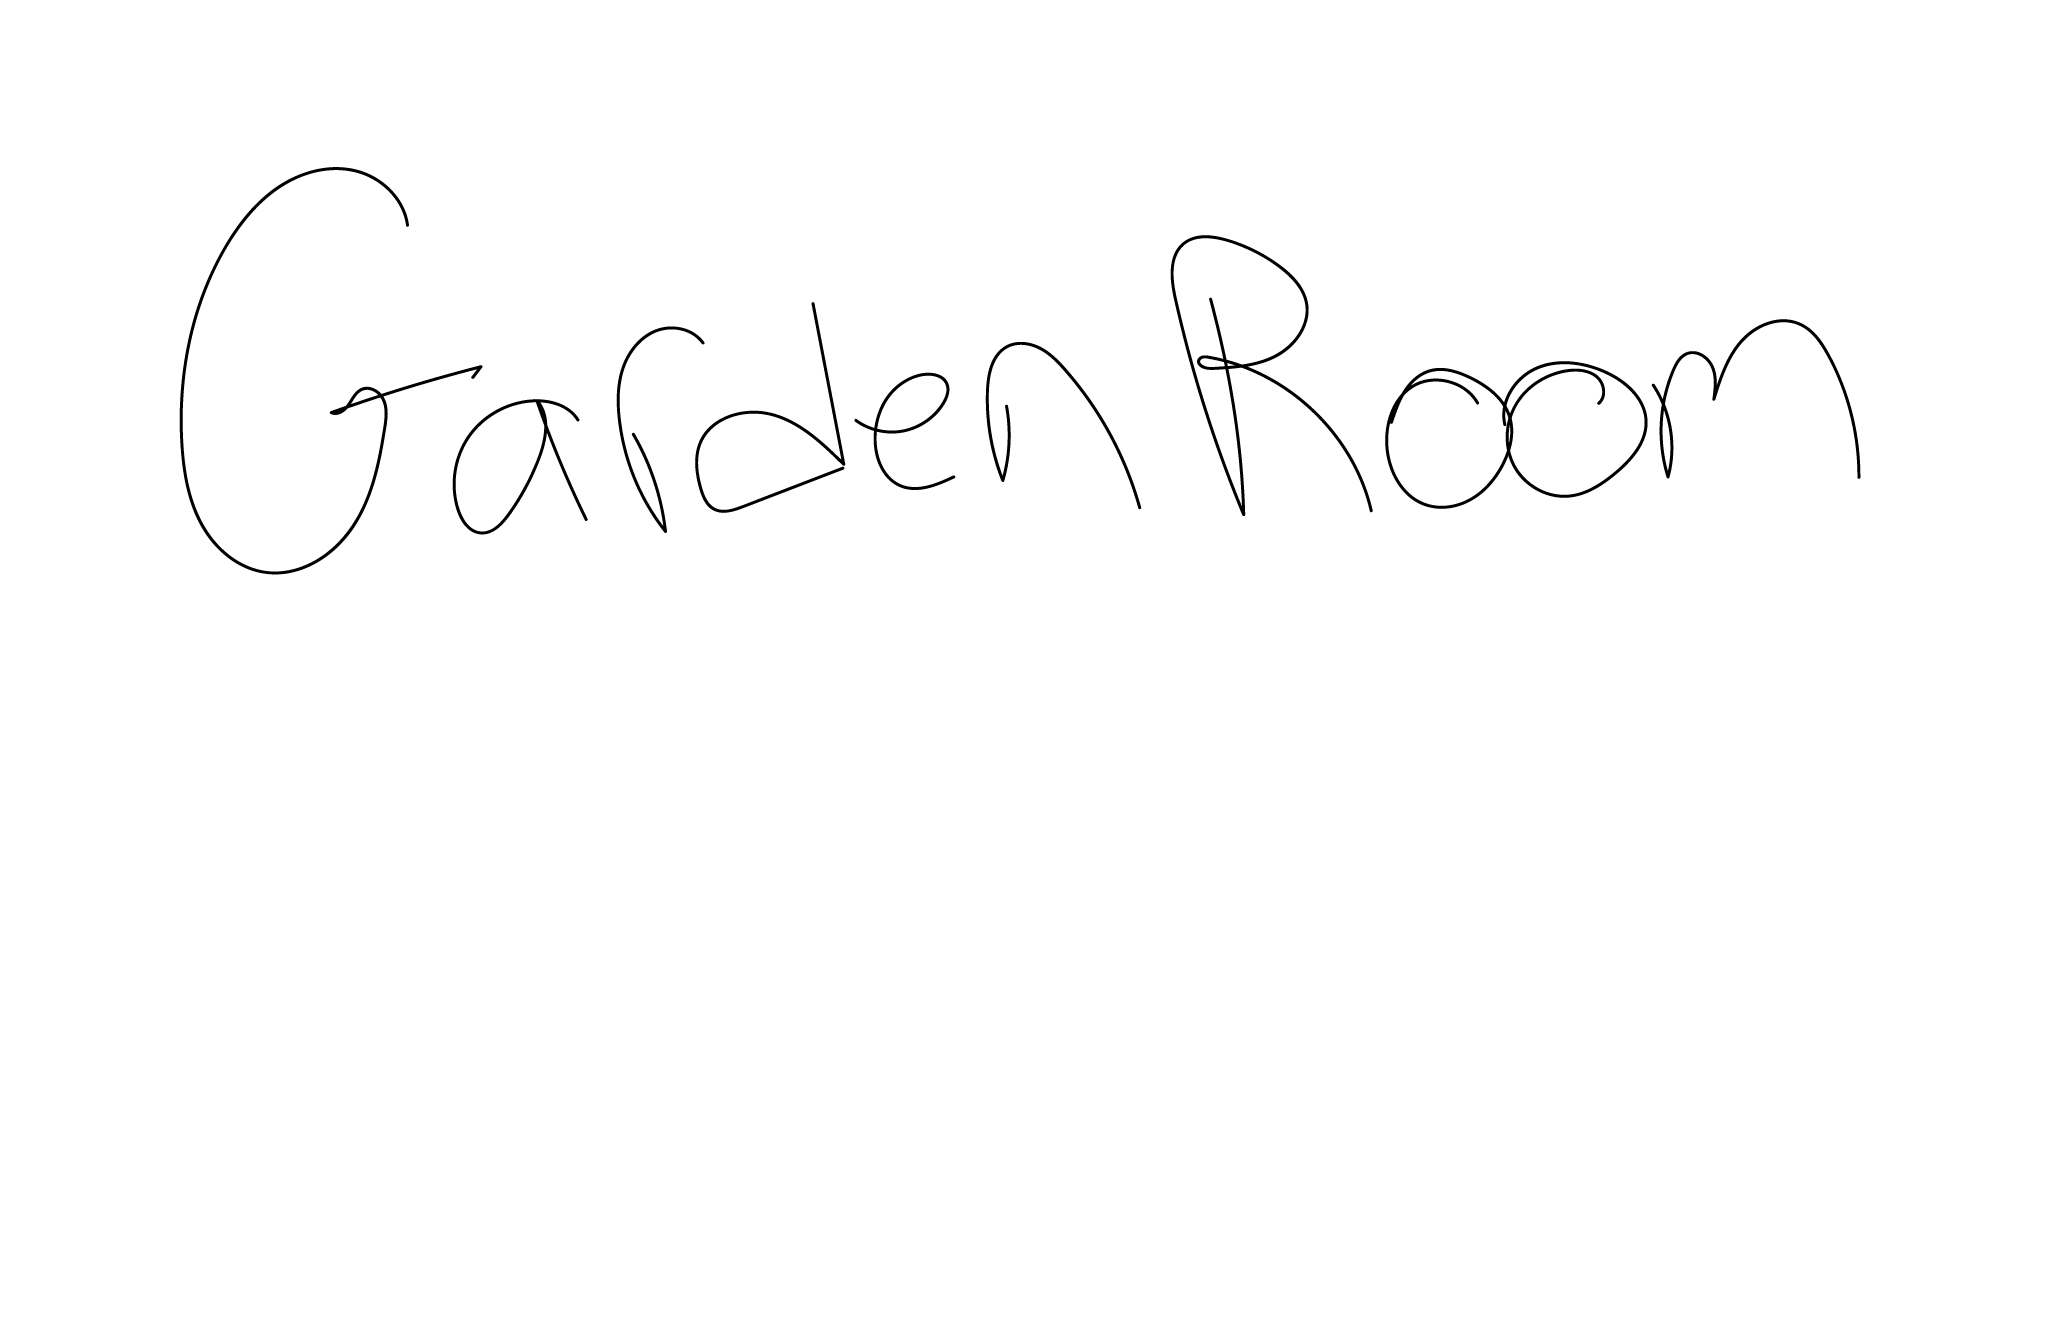 Garden Room